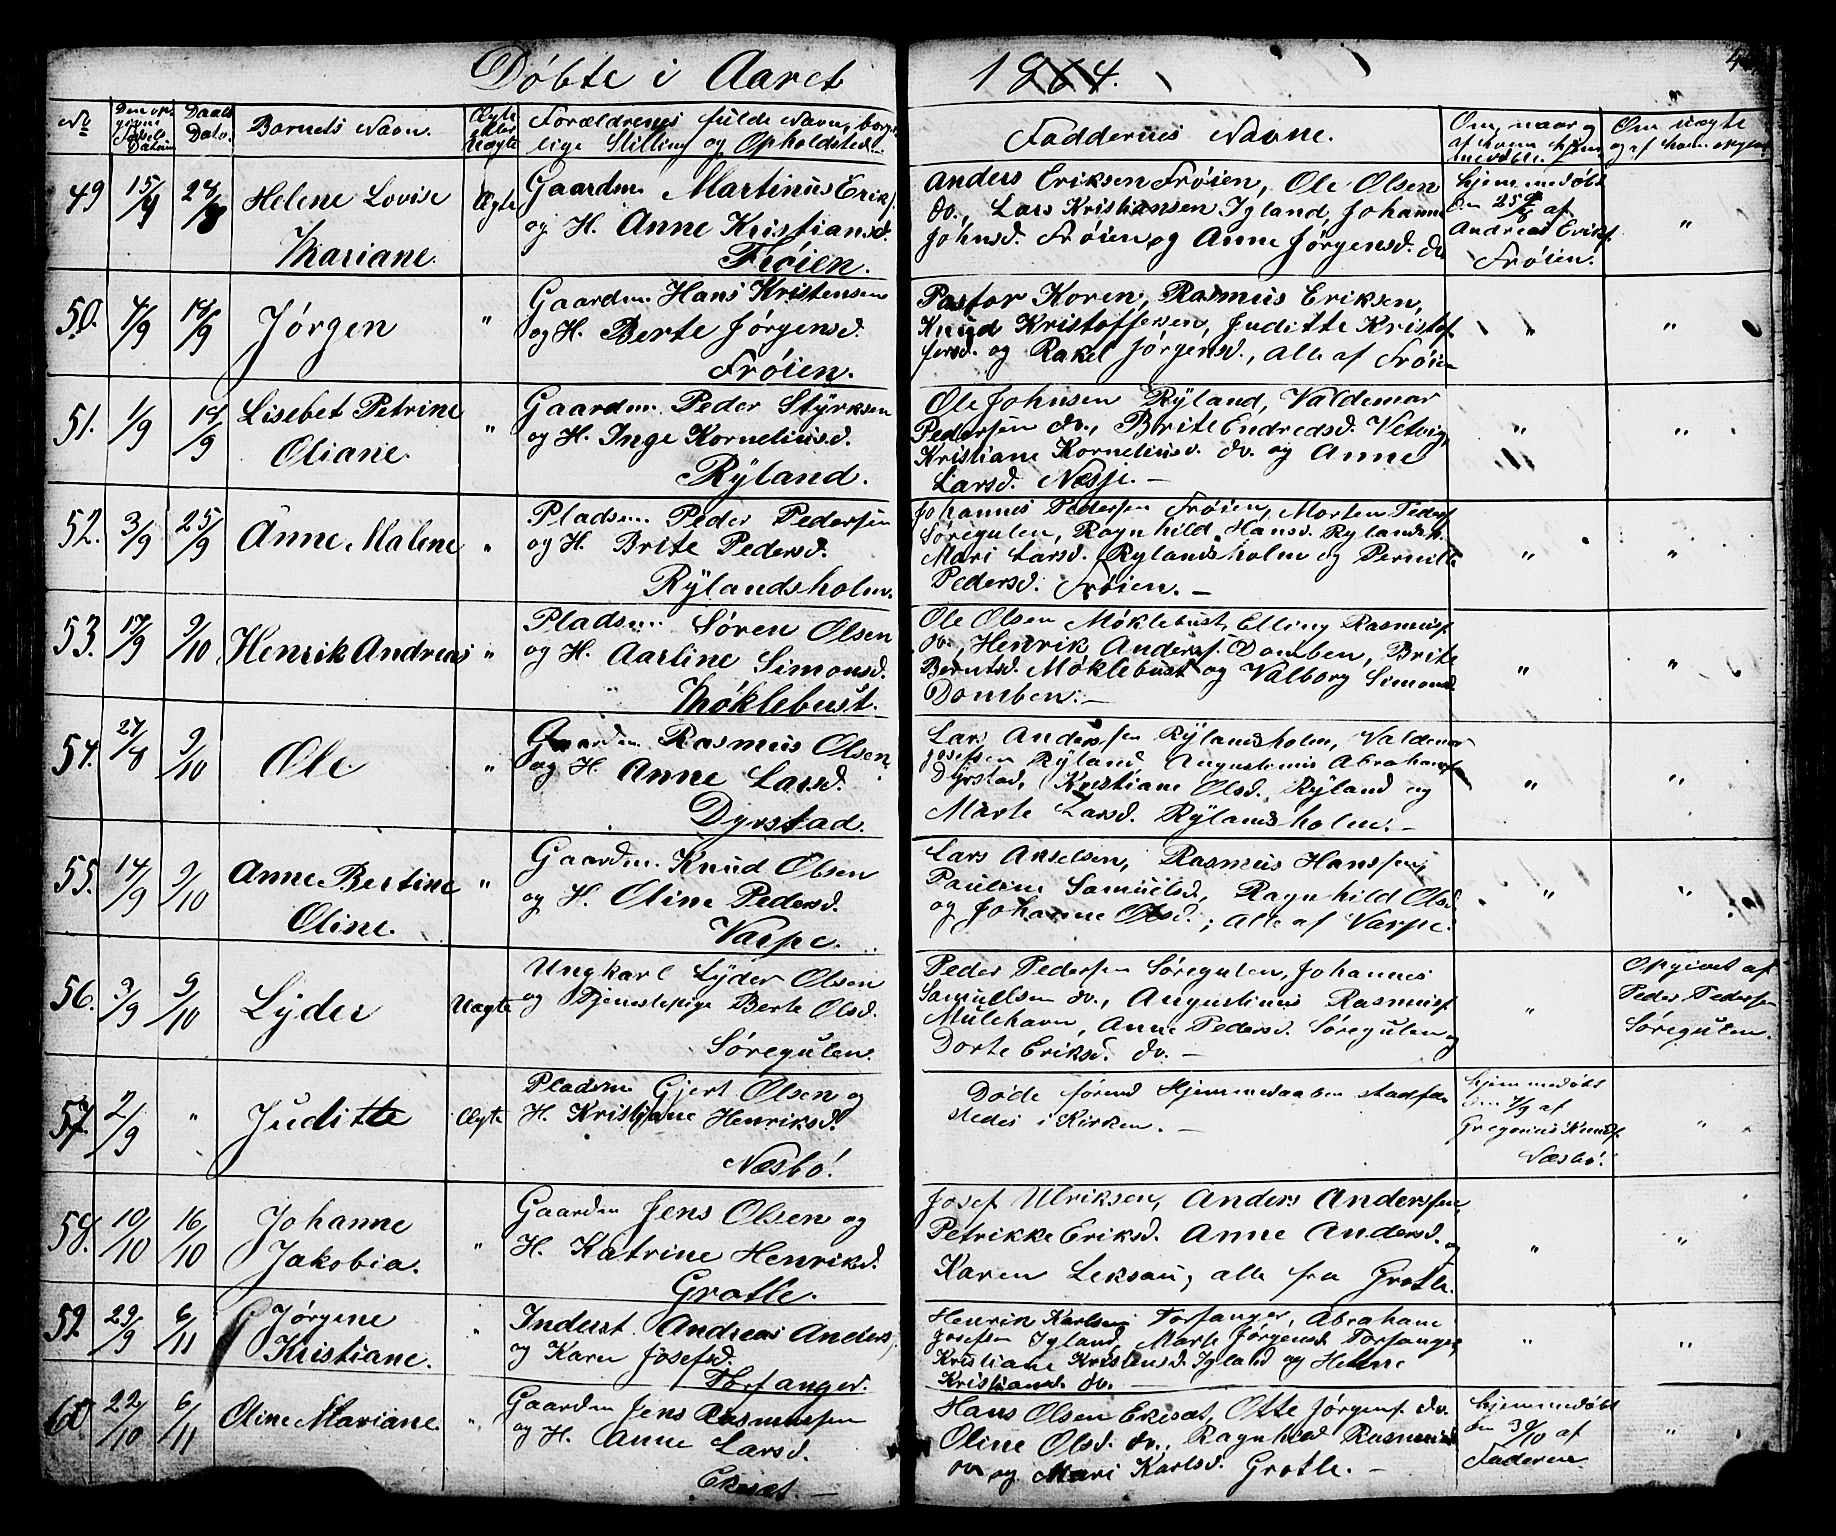 Døbte i Aaret 1864.
No
Den op-
givne
Fødsels
Datum
Daabs
Dato.
Barnets Navn.
Ægte
eller
Uægte
Forældrenes fulde Navn, borger-
lige Stilling og Opholdsted.
Faddernes Navne.
Om, naar og
af hvem hjem-
medøbt.
Om uægte
og af hvem opgivet
49 15/4 28/8 Helene Lovise
Mariane.
Ægte
Gaardm. Martinus Eriks.
og H. Anne Kristiansd.
Frøien.
Anders Eriksen Frøien, Ole Olsen
do., Lars Kristiansen Igland, Johanne
Johnsd. Frøien og Anne Jørgensd. do
hjemmedøbt
den af
Andreas Eriks.
Frøien.
"
50. 4/9 18/9 Jørgen "
Gaardm. Hans Kristensen
og H. Berte Jørgensd.
Frøien.
Pastor Koren, Rasmus Eriksen,
Knud Kristoffersen, Juditte Kristof-
fersd. og Rakel Jørgensd., alle af Frøien
" "
51. 1/9 18/9 Lisebet Petrine
Oliane.
"
Gaardm. Peder Styrksen
og H. Inge Korneliusd.
Rÿland.
Ole Johnsen Rÿland, Valdemar
Pedersen do., Brite Endredsd. Vetvig,
Kristiane Korneliusd. do. og Anne
Larsd. Nesje.–
" "
52. 3/9 25/9 Anne Malene "
Pladsm. Peder Pedersen
og H. Brite Pedersd.
Rÿlandsholm.
Johannes Pedersen Frøien, Morten Peders.
Søregulen, Ragnhild Hansd. Rylandsh.
Mari Larsd. Rylandsholm og Pernille
Pedersd. Frøien.–
" "
53. 17/9 9/10 Henrik Andreas "
Pladsm. Søren Olsen
og H. Aarline Simonsd.
Møklebust.
Ole Olsen Møklebust, Elling Rasmus.
do., Henrik Anders. Domben, Brite
Berntsd. Møklebust og Valborg Simonsd.
Domben.–
" "
54. 27/8 9/10 Ole "
Gaardm. Rasmus Olsen
og H. Anne Larsd.
Dyrstad.
Lars Anderssen Rÿlandsholm, Valdemar
Josefsen Rÿland Augustinus Abrahams.
Dÿrstad, Kristiane Olsd. Rÿland og
Marte Larsd. Rÿlandsholm.–
" "
55. 14/9 9/10 Anne Bertine
Oline.
"
Gaardm. Knud Olsen
og H. Oline Pedersd.
Varpe.
Lars Akselsen, Rasmus Hanssen,
Pauline Samuelsd., Ragnhild Olsd.
og Johanne Olsd.; alle af Varpe.
" "
56. 3/9 9/10 Lÿder Uægte
Ungkarl Lÿder Olsen
og Tjenestepige Berte Olsd.
Søregulen.
Peder Pederssen Søregulen, Johannes
Samuelsen do., Augustinus Rasmus.
Mulehavn, Anne Pedersd. Søregulen og
Dorte Eriksd. do.–
"
Opgivet af
Peder Pederssen
Søregulen.
57. 2/9 " Juditte Ægte
Pladsm Gjert Olsen og
H. Kristiane Henriksd.
Næsbø.
Døde førend Hjemmedaaben stadfæ-
stedes i Kirken.–
hjemmedøbt
den af
Gregorius Knuds.
Næsbø.
"
58. 10/10 16/10 Johanne
Jakobia.
"
Gaardm Jens Olsen og
H. Katrine Henriksd.
Grotle.
Josef Ulriksen, Anders Anderssen,
Petrikke Eriksd. Anne Andersd. og
Karen Leksau, alle fra Grotle.
" "
59. 29/9 6/11 Jørgene
Kristiane.
"
Inderst. Andreas Anders.
og Karen Josefsd.
Torfanger.
Henrik Karlsen Torfanger, Abraham
Josefsen Igland, Marte Jørgensd. Torfanger,
Kristiane Kristensd. Igland og Helene
Kristiansd. do.
" "
60 22/10 6/11 Oline Mariane. "
Gaardm Jens Rasmussen
og H. Anne Larsd.
Ekesæt.–
Hans Olsen Ekesæt, Otte Jørgens. do.
Oline Olsd. do., Ragnhild Rasmusd.
do og Mari Karlsd. Grotle.–
hjemmedøbt
den 30/10 af
Faderen.
"